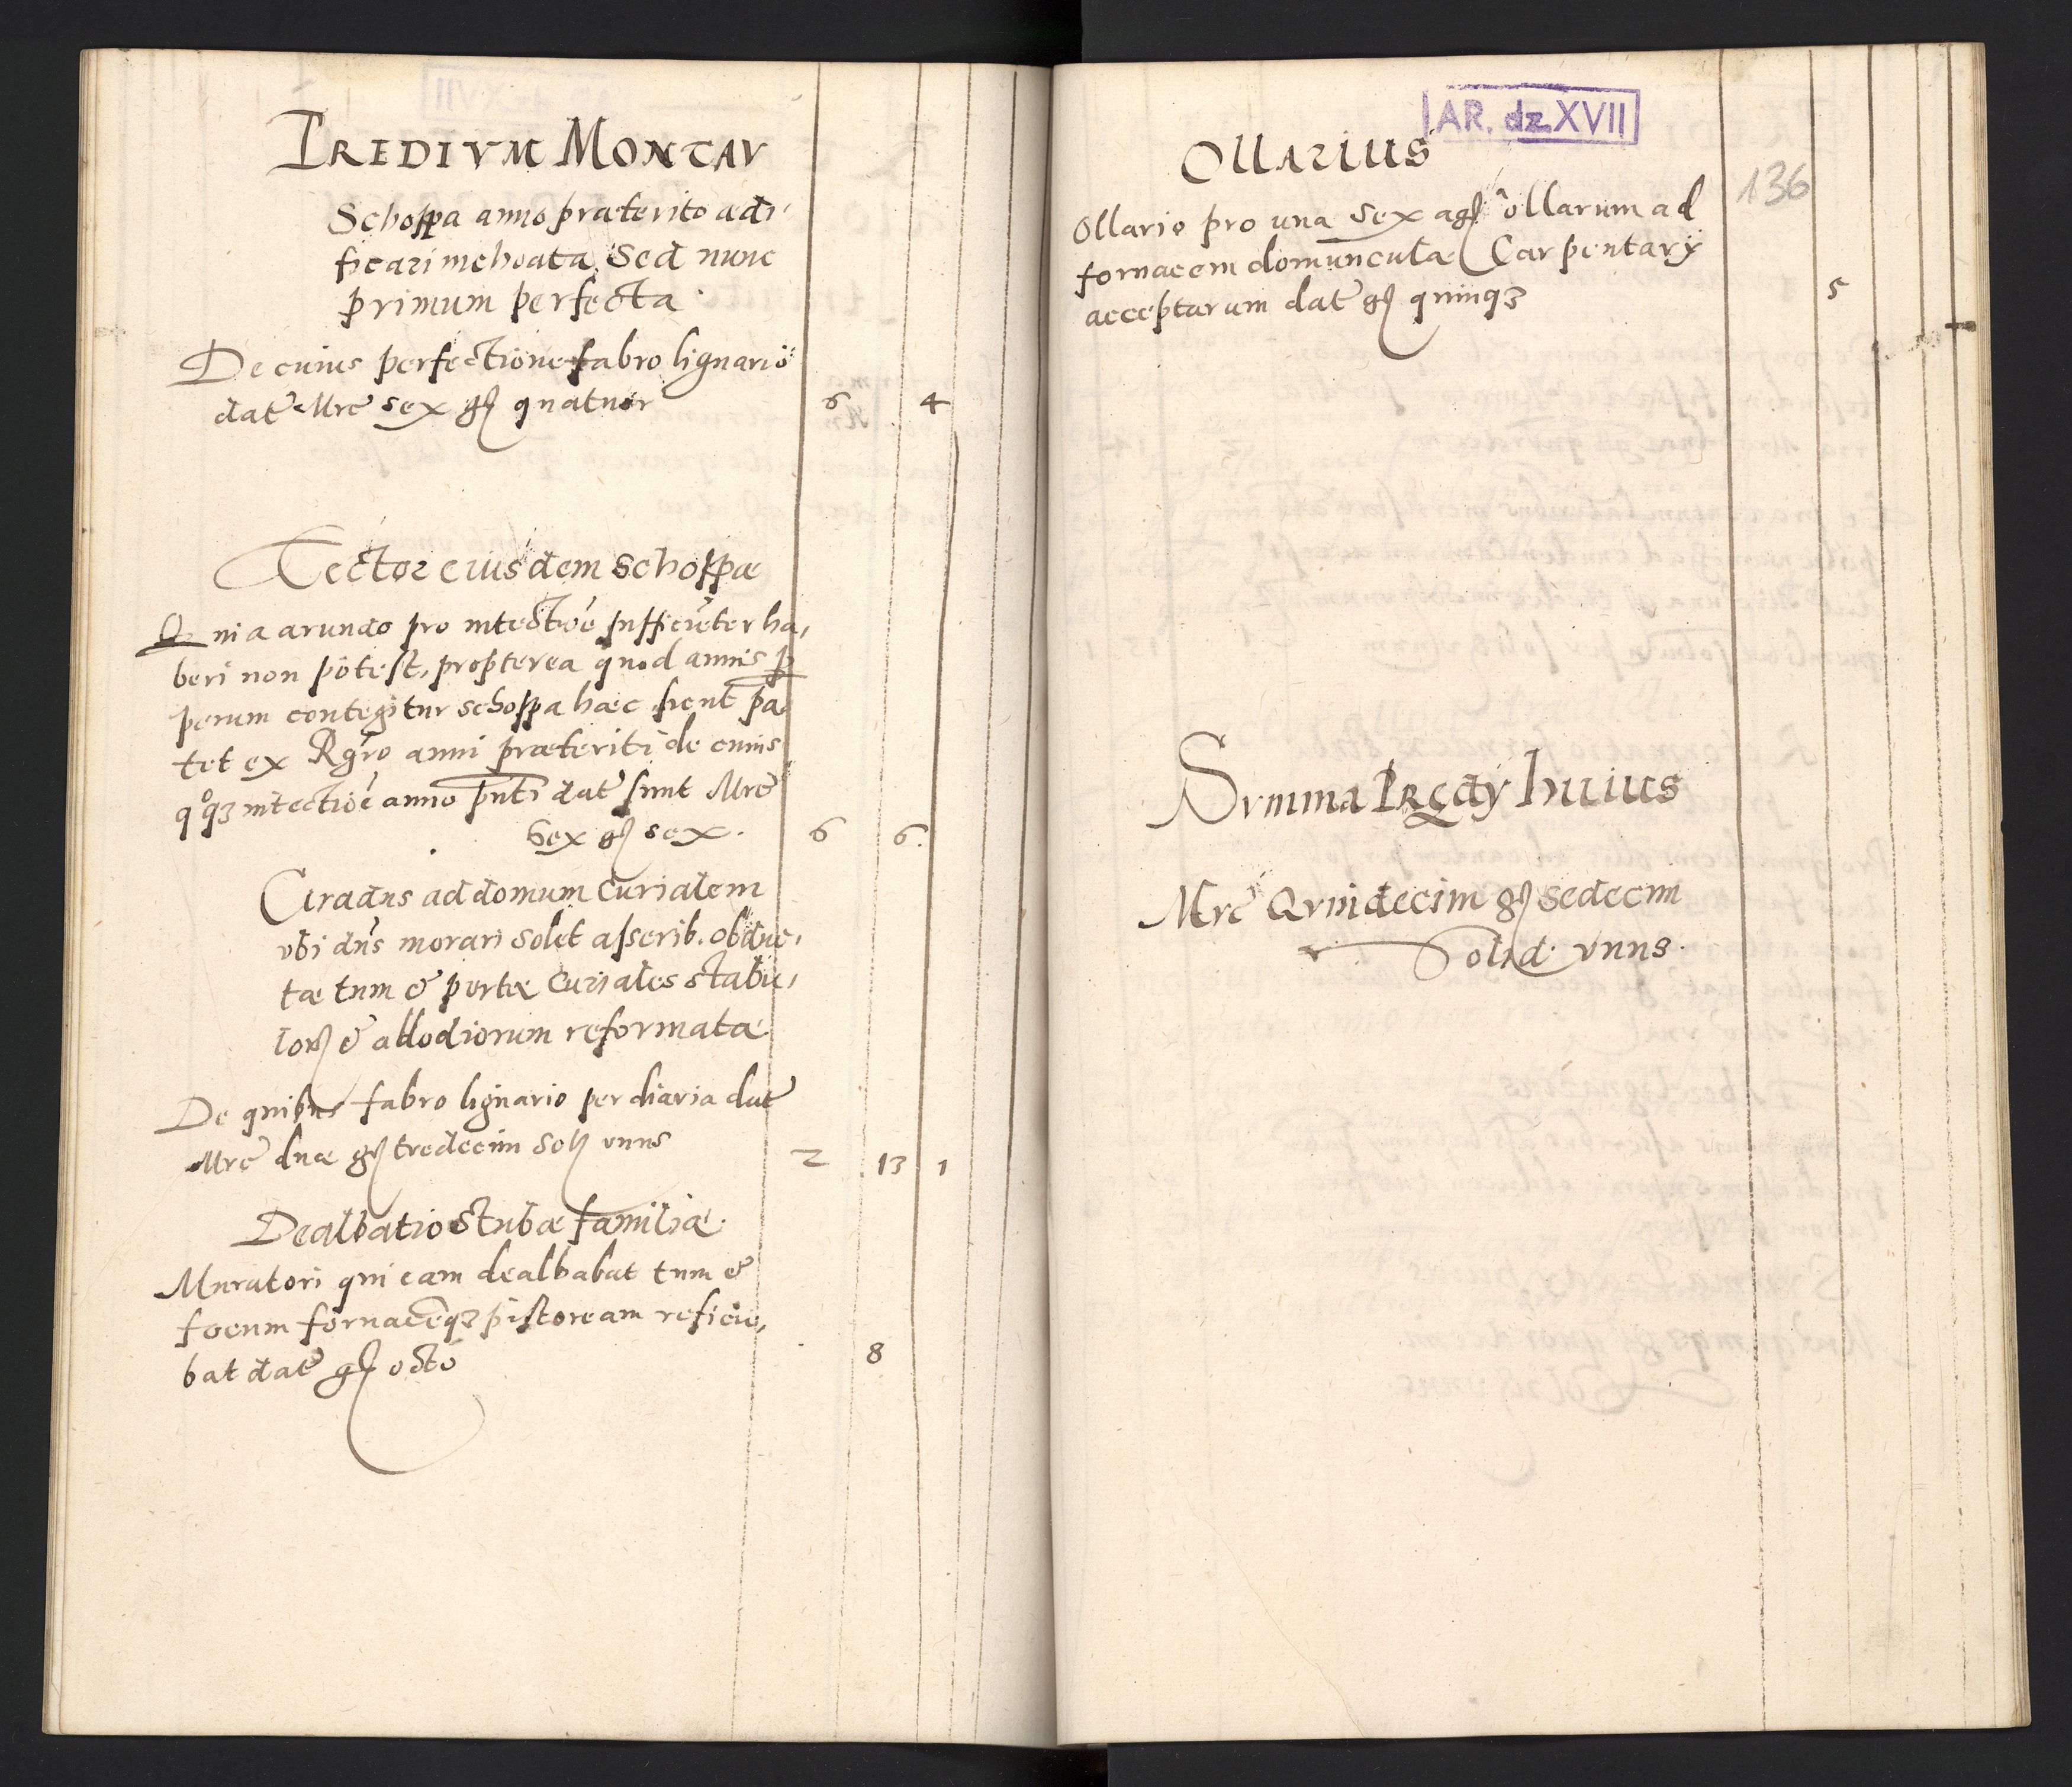 PREDIVM MONTAV
Schoppa anno præterito ædi,
ficari inchoata, Sed nunc
primum perfecta.
De cuius perfectione fabro lignario
dat͂ Mrc̃ sex gʃ quatuor 6 4
Tector eiusdem schoppæ
Quia arundo pro intectiõe sufficiẽter ha,
beri non potest, propterea quod annis p̱
perum contegitur schoppa hæc sicut pa
tet ex Rg̃ro anni præteriti de cuius
qºqꝫ intectiõe anno p̃nti dat͂ sunt Mrc̃
Sex gʃ sex. 6 6.
Gradus ad domum Curialem
vbi dñs morari solet asserib. obduc,
tæ tum & portæ Curiales stabu,
loꝝ & allodiorum reformatæ
De quibus fabro lignario per diaria dat͂
Mrc̃ duæ gʃ tredecim Solʒ vnus 2 13 1
Dealbatio stubæ familiæ.
Muratori qui eam dealbabat tum &
focum fornacẽqꝫ pistoream reficie,
bat dat͂ gʃ octo 8
AR. dz. XVII
136
Ollarius
Ollario pro una sexagʃ ollarum ad
fornacem domunculæ Carpentarÿ
acceptarum dat͂ gʃ quinqꝫ 5
Svmma Prędÿ huius
Mrc̃ Qvindecim gʃ sedecim
Solid. vnus.